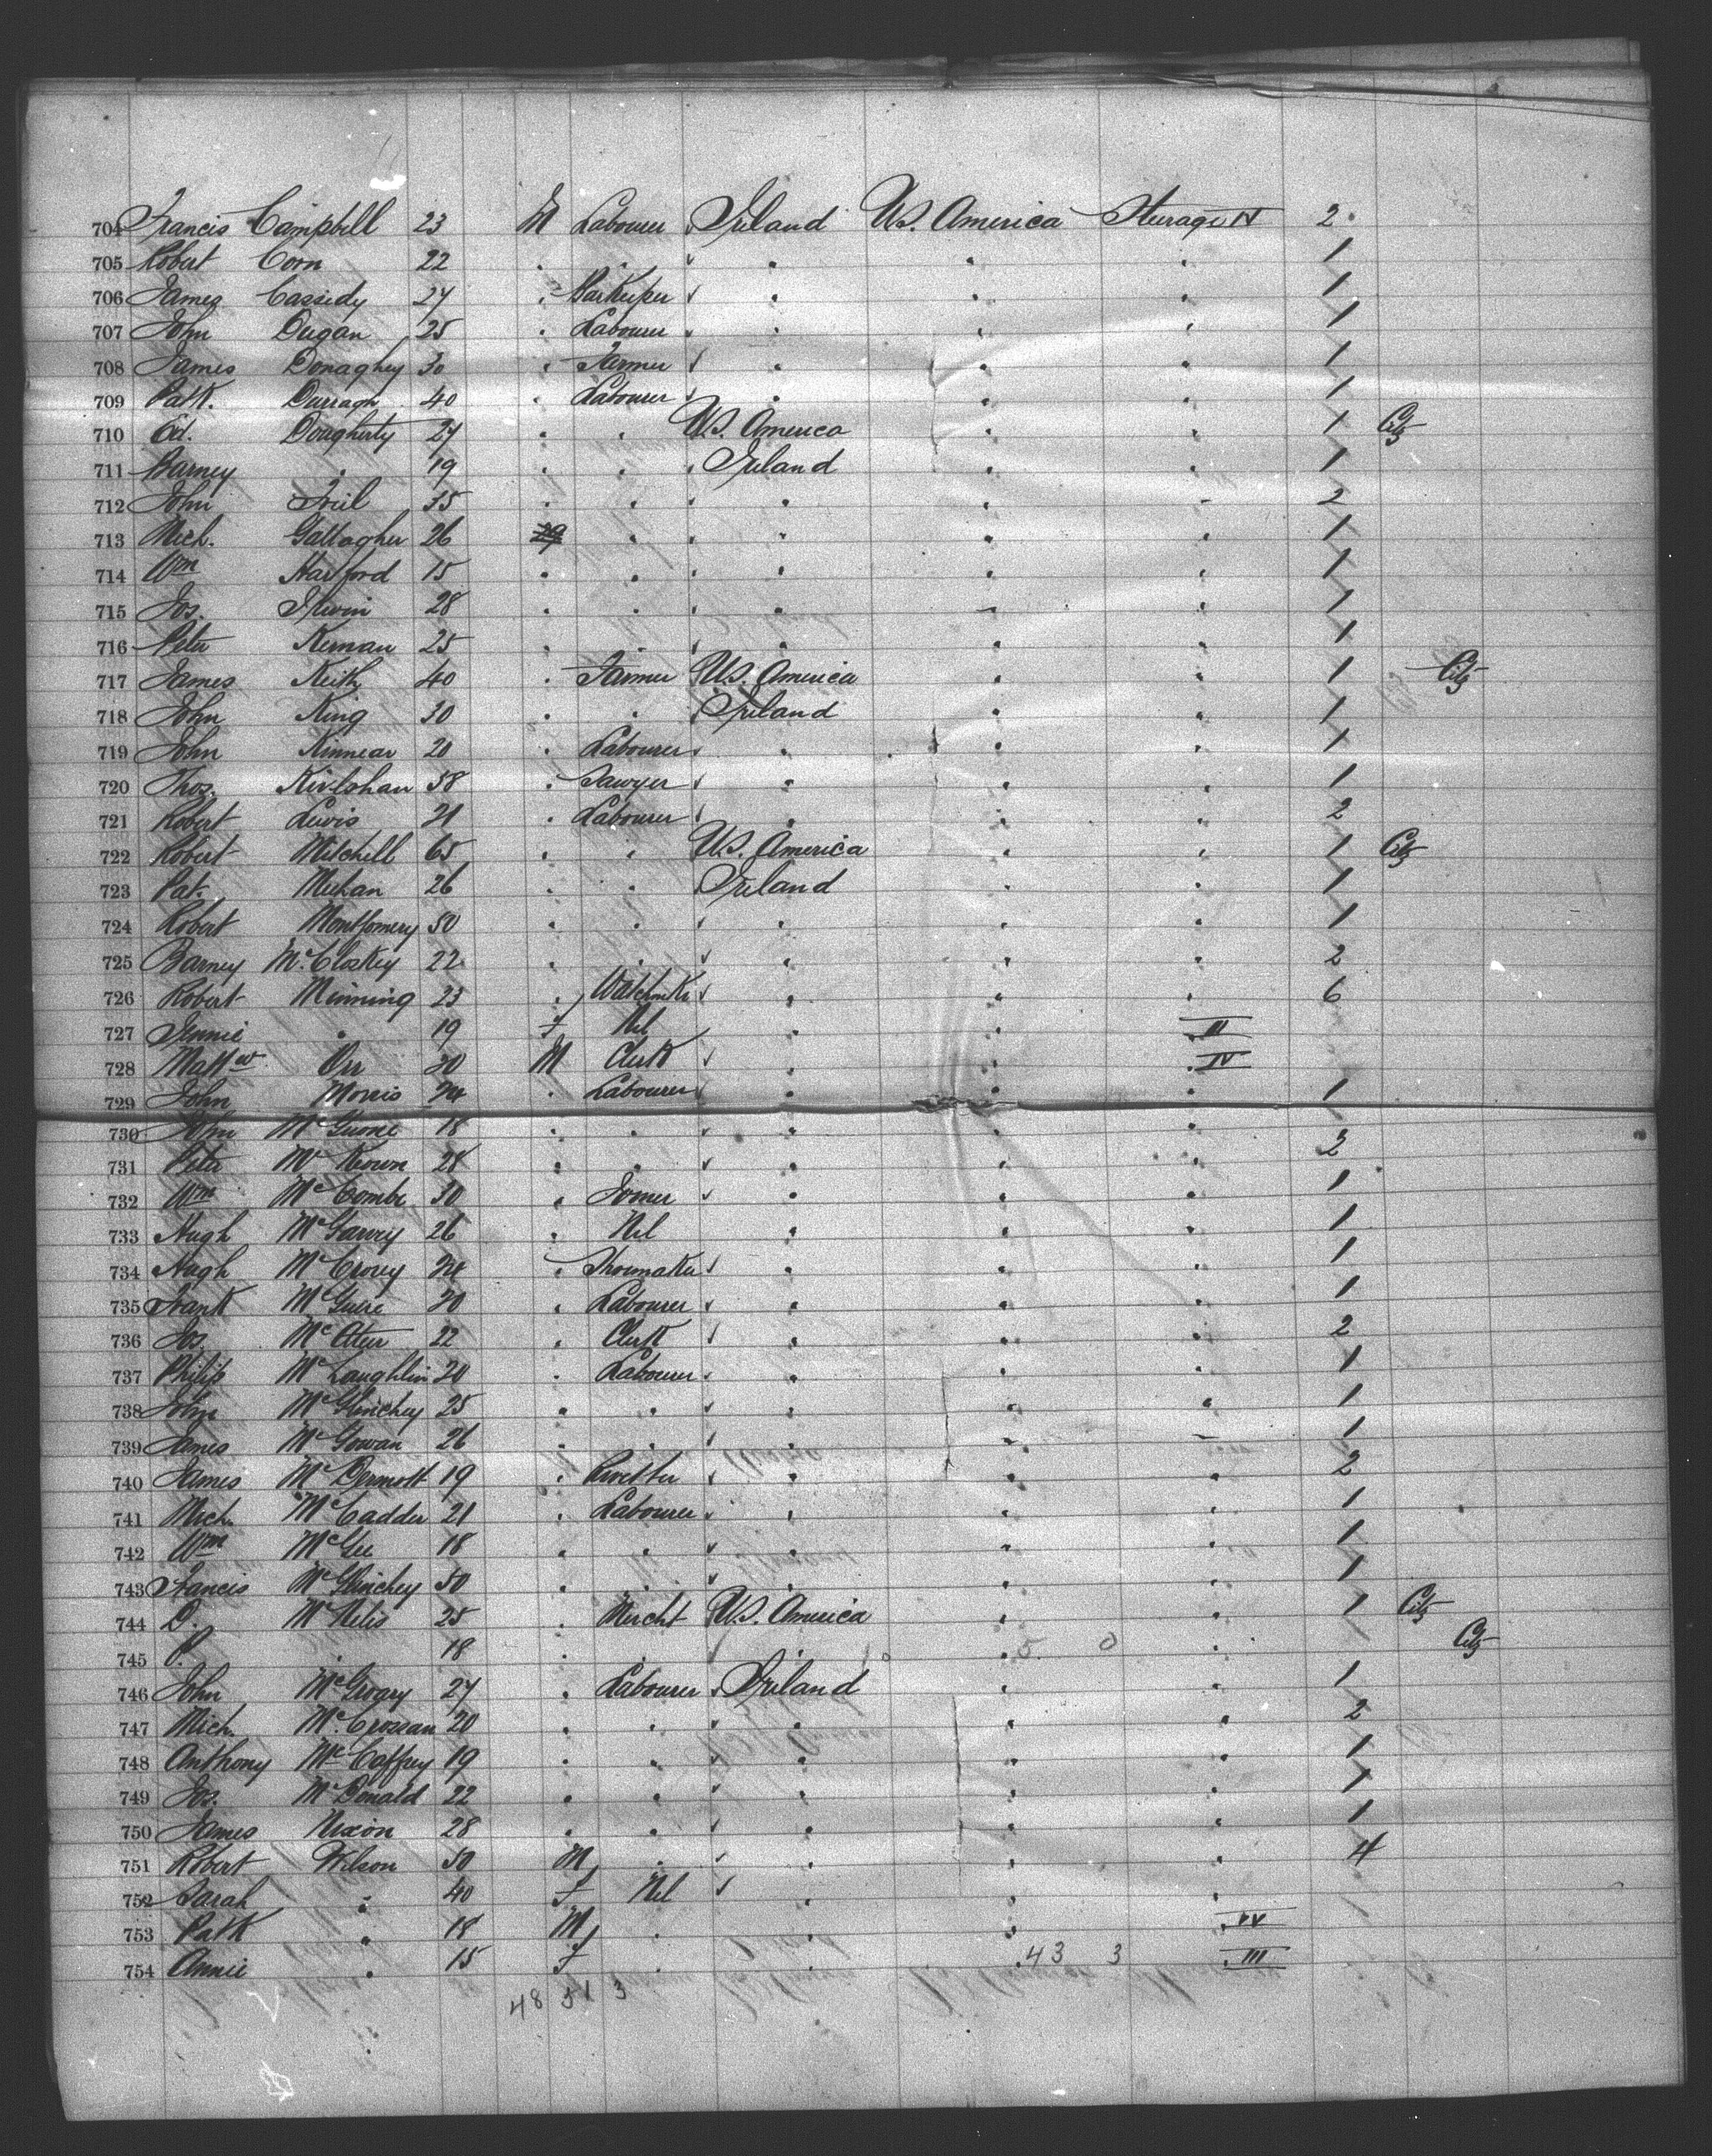 704 Francis Campbell 23 M Labourer Ireland U.S. America Steerage IV 2
705 Robert Corn 22 " " " " " 1
706 James Cassidy 24 " Barkeeper " " " 1
707 John Dugan 25 " Labourer " " " 1
708 James Donaghey 30 " Farmer " " " 1
709 Patk. Durragh 40 " Labourer " " " 1
710 Ed. Dougherty 24 " " U.S. America " " 1 Citz
711 Barney " 19 " " Ireland " " 1
712 John Friel 35 " " " " " 2
713 Mich. Gallagher 26 " " " " 1
714 Wm Hartford 15 " " " " " 1
715 Jos. Irwin 28 " " " " " 1
716 Peter Kernan 25 " " " " " 1
717 James Keith 40 " Farmer U.S. America " " 1 Citz
718 John King 30 " " Ireland " " 1
719 John Kinnear 20 " Labourer " " " 1
720 Thos. 38 " Sawyer " " " 1
721 Robert Lewis 21 " Labourer " " " 2
722 Robert Mitchell 65 " " U.S. America " " 1 Citz
723 Pat. Meehan 26 " " Ireland " " 1
724 Robert Montgomery 50 " " " " " 1
725 Barney McCloskey 22 " " " " " 2
726 Robert Minning 23 " Watchmkr " " " 6
727 Jennie " 19 F Nil " " III
728 Mattw Orr 20 M Clerk " " " IV
729 John Morris 24 " Labourer " " " 1
730 John 18 " " " " "
731 Peter McKeown 28 " " " " " 2
732 Wm McCombe 30 " Joiner " " " 1
733 Hugh McGarvey 26 " Nil " " " 1
734 Hugh McCrorey 24 " Shoemaker " " " 1
735 Frank McGuire 20 " Labourer " " " 1
736 Jos. McAteer 22 " Clerk " " " 2
737 Philip McLaughlin 20 " Labourer " " " 1
738 John McGlinchey 25 " " " " " 1
739 James McGowan 26 " " " " " 1
740 James McDermott 19 " " " " 2
741 Mich. McCadden 21 " Labourer " " " 1
742 Wm McGee 18 " " " " " 1
743 Francis McGlinchey 50 " " " " " 1
744 D. McNelis 25 " Mercht U.S. America " " 1 Citz
745 P. " 18 " " " " 5 0 " Citz
746 John McGroary 24 " Labourer Ireland " " 1
747 Mich. McCrossan 20 " " " " " 2
748 Anthony McCaffrey 19 " " " " " 1
749 Jos. McDonald 22 " " " " " 1
750 James Nixon 28 " " " " " 1
751 Robert Wilson 50 M " " " " 4
752 Sarah " 40 F Nil " " "
753 Patk " 18 M " " " IV
754 Annie " 15 F " " " 43 3 III
48 51 3